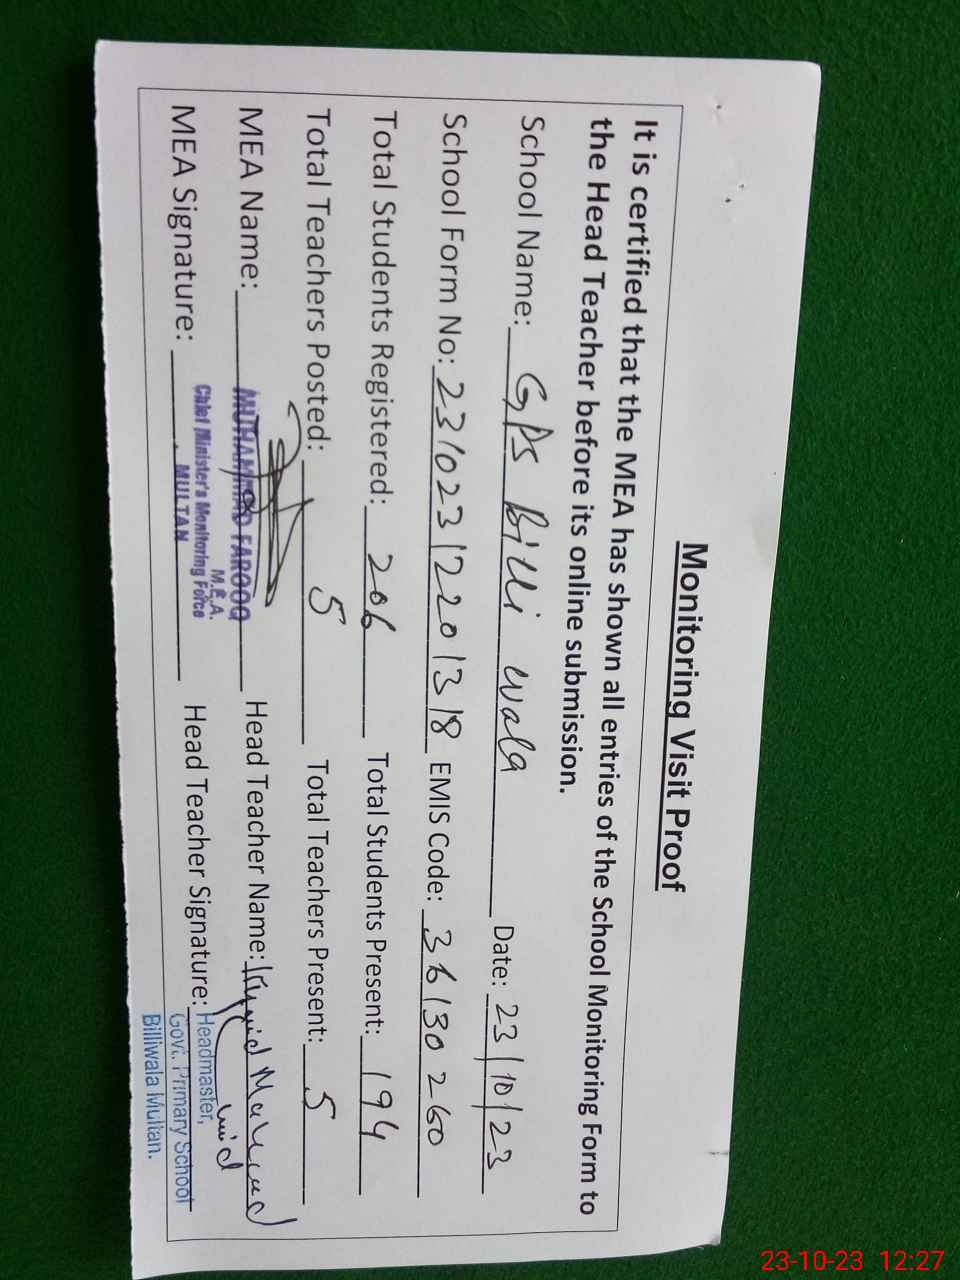 Monitoring Visit Proof
It is certified that the MEA has shown all entries of the School Monitoring Form to
the Head Teacher before its online submission.
School Name: GPS Billi wala Date: 23/10/23
School Form No: 231023122013 18 EMIS Code: 36130260
Total Students Registered: 206 Total Students Present: 194
Total Teachers Posted: 5 Total Teachers Present: 5
MEA Name: MUHAMMAD FAROOQ Head Teacher Name:
M.E.A.
Chief Minister's Monitoring Force
MULTAN
MEA Signature: Head Teacher Signature:
Headmaster,
Govt. Primary School
Billiwala Multan.
23-10-23 12:27